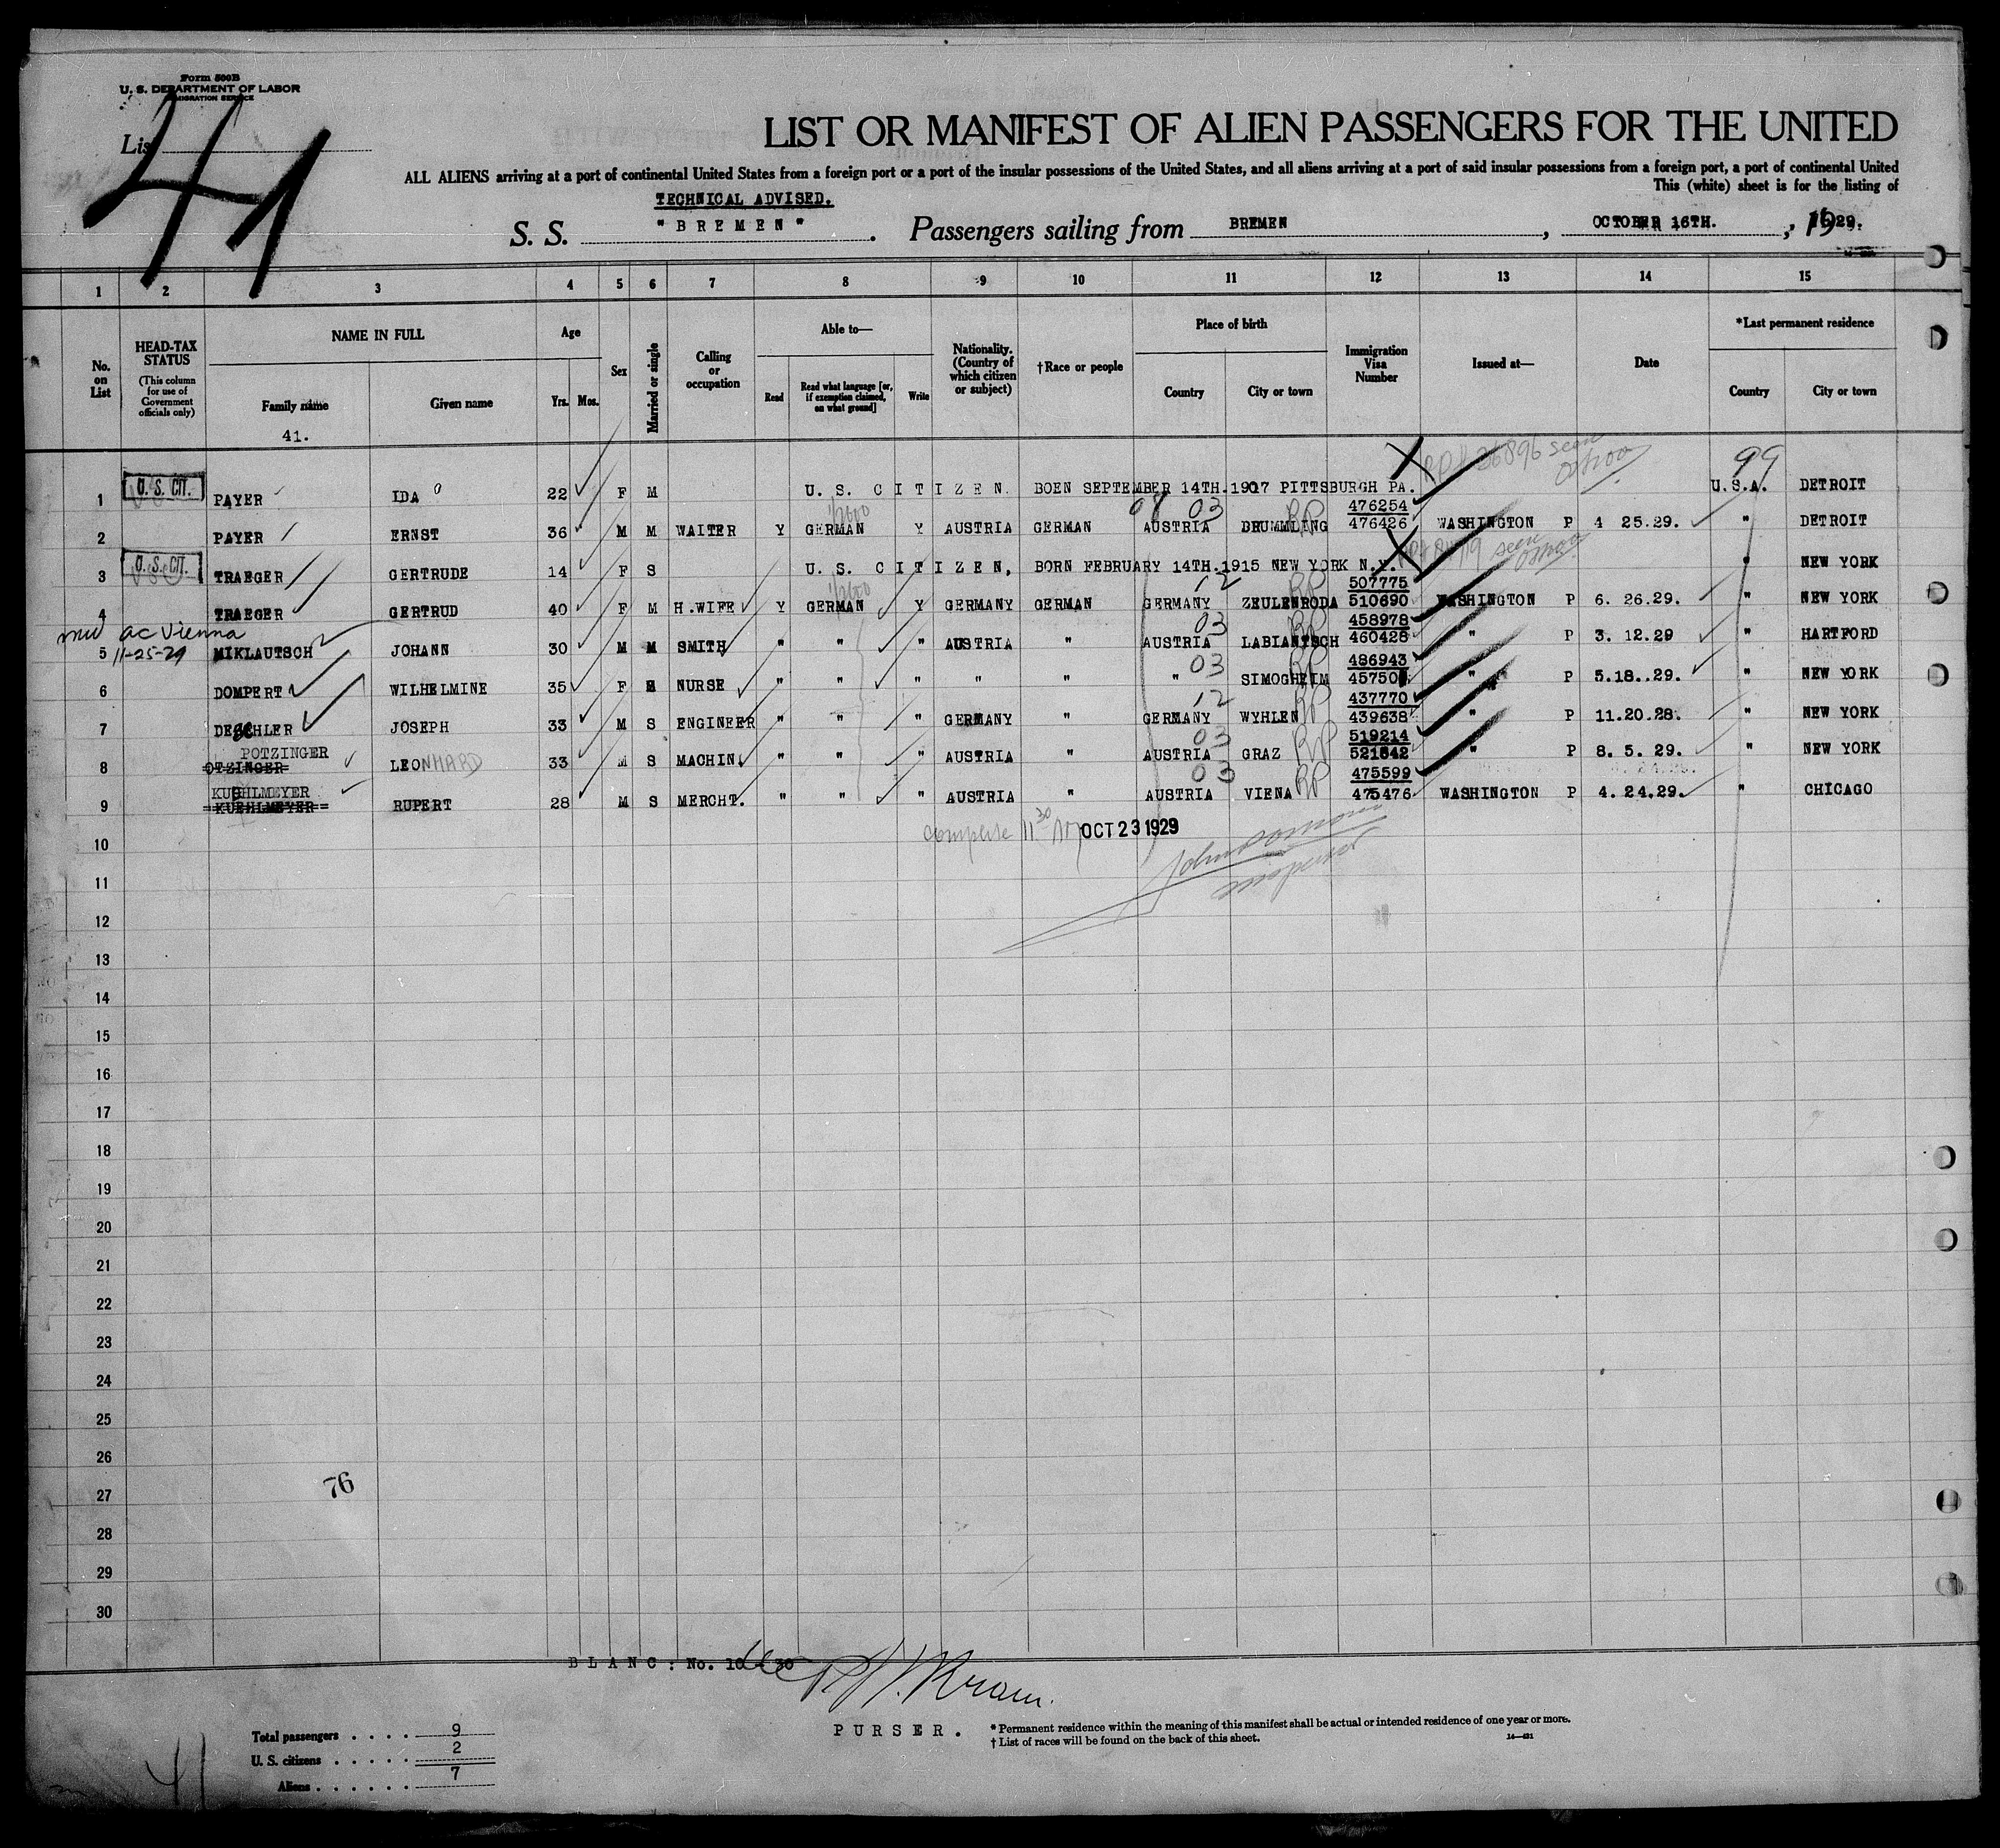 Form 500B
U. S. DEPARTMENT OF LABOR
IMMIGRATION SERVICE
List
41
LIST OR MANIFEST OF ALIEN PASSENGERS FOR THE UNITED
ALL ALIENS arriving at a port of continental United States from a foreign port or a port of the insular possessions of the United States, and all aliens arriving at a port of said insular possessions from a foreign port, a port of continental United
This (white) sheet is for the listing of
TECHNICAL ADVISED.
S. S. "BREMEN". Passengers sailing from BREMEN, OCTOBER 16TH., 1929.
1 2 3 4 5 6 7 8 9 10 11 12 13 14 15
No. on List
HEAD-TAX STATUS
(This column for use of Government officials only)
NAME IN FULL
Family name
Given name
41.
Age
Yrs. Mos.
Sex
Married or single
Calling or occupation
Able to—
Read
Read what language [or, if exemption claimed, on what ground]
Write
Nationality. (Country of which citizen or subject)
†Race or people
Place of birth
Country
City or town
Immigration Visa Number
Issued at—
Date
*Last permanent residence
Country
City or town
99
1 U. S. CIT. PAYER IDA 22 F M U. S. CITIZEN. BOEN SEPTEMBER 14TH.1907 PITTSBURGH PA. U.S.A. DETROIT
08 03 476254
2 PAYER ERNST 36 M M WAITER Y GERMAN Y AUSTRIA GERMAN AUSTRIA DRUMMLING RP 476426 WASHINGTON P 4 25.29. " DETROIT
3 U. S. CIT. TRAEGER GERTRUDE 14 F S U. S. CITIZEN, BORN FEBRUARY 14TH.1915 NEW YORK N.Y. " NEW YORK
12 507775
4 TRAEGER GERTRUD 40 F M H.WIFE Y GERMAN Y GERMANY GERMAN GERMANY ZEULENRODA RP 510690 WASHINGTON P 6. 26.29. " NEW YORK
ac Vienna
11-25-29
03 458978
5 MIKLAUTSCH JOHANN 30 M M SMITH " " " AUSTRIA " AUSTRIA LABIANTSCH RP 460428 " P 3. 12.29 " HARTFORD
03 486943
6 DOMPERT WILHELMINE 35 F NURSE " " " " " " SIMOGHEIM RP 45750 " P 5.18..29. " NEW YORK
12 437770
7 JOSEPH 33 M S ENGINEER " " " GERMANY " GERMANY WYHLEN RP 439638 " P 11.20.28. " NEW YORK
03 519214
POTZINGER
8 OTZINGER LEONHARD 33 M S MACHIN. " " " AUSTRIA " AUSTRIA GRAZ RP 521842 " P 8. 5. 29. " NEW YORK
03 475599
KUEHLMEYER
9 KUEHLMEYER RUPERT 28 M S MERCHT. " " " AUSTRIA " AUSTRIA VIENA RP 475476 WASHINGTON P 4. 24.29. " CHICAGO
OCT 23 1929
10
11
12
13
14
15
16
17
18
19
20
21
22
23
24
25
26
27
28
29
30
76
BLANC: No. 10 - 30
PURSER.
Total passengers . . . . 9
U. S. citizens . . . . . 2
Aliens . . . . . . 7
*Permanent residence within the meaning of this manifest shall be actual or intended residence of one year or more.
† List of races will be found on the back of this sheet.
41